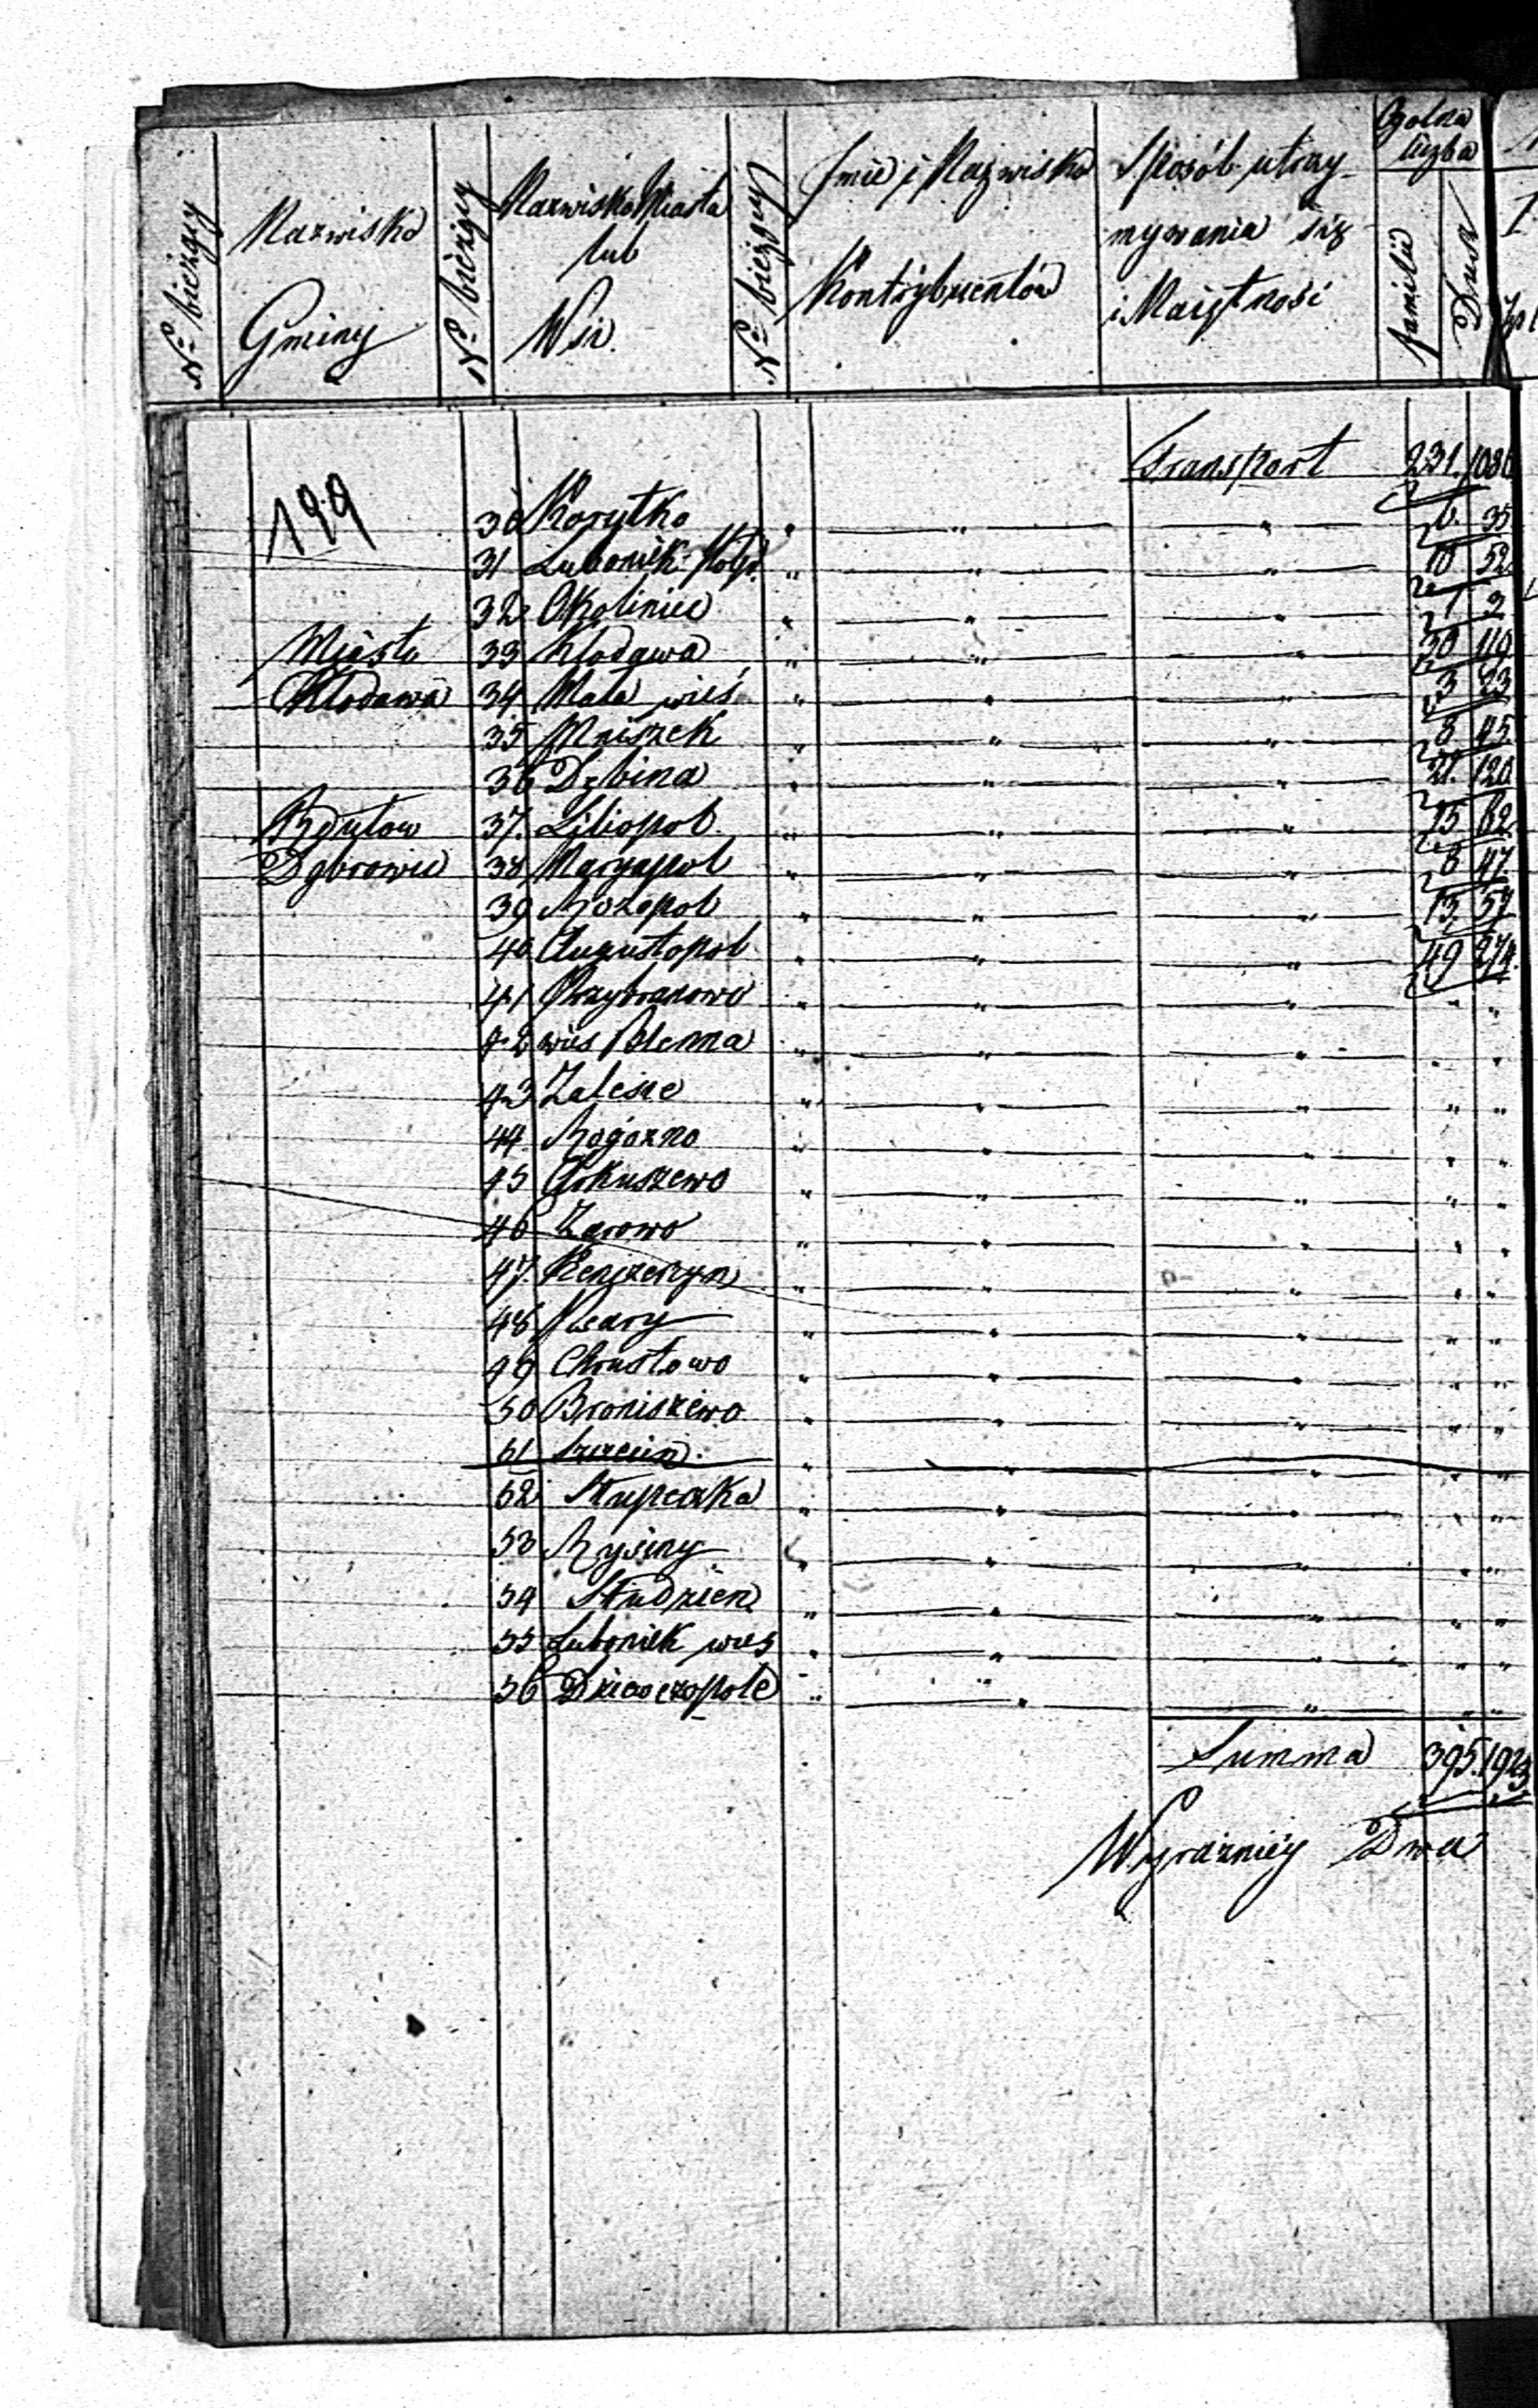 Nº bieżący
Nazwisko Gminy
Nº bieżący
Nazwisko Miasta lub Wsi
Nº bieżący
Imie i Nazwisko Kontrybuentów
Sposób utrzymywania się i Maiętności
Ogolna liczba
familii
Dusz
Transport 231. 108
199
30 Korytko " " " 6. 35
31 Luboniek " " " 10 52
32 Okoliniec " " " 1 2
Miasto 33 Kłodawa " " " 30 119
Kłodawa 34 Mała wieś " " " 3 23
35 Mniszek " " " 8 45
36 Dębina " " " 21. 120
Bdułow 37. Liliopol " " " 15 62
Dąbrowice 38 Maryapol " " " 8 47.
39 Rozopol " " " 13. 57
40 Augustopol " " " 49 274.
41 Przybranowo " " " " "
42 wieś Blenna " " " " "
43 Zalesie " " " " "
44. Rogozno " " " " "
45 Arkuszewo " " " " "
46 Zarowo " " " " "
47. " " " " "
48 " " " " "
49 Chrustowo " " " " "
50 Broniszewo " " " " "
51 Szczecin. " " " " "
52 Słupeczka " " " " "
53 Rysiny " " " " "
54 Studzien " " " " "
55 Luboniek wieś " " " " "
56 " " " " "
Summa 395. 1923
Wyrazniéy Dwa